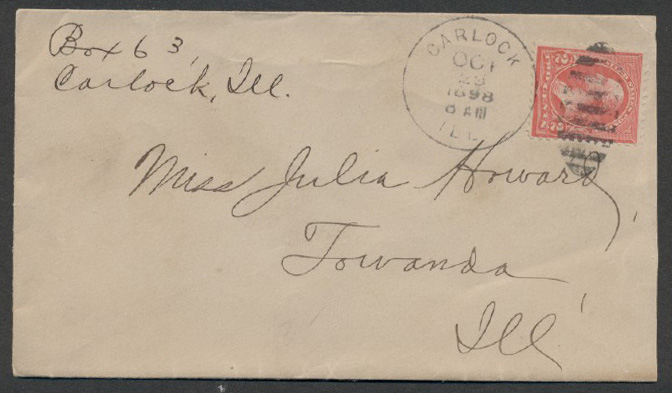 Box 63,
Carlock, Ill.
CARLOCK
OCT
29
1898
8 AM
ILL.
Miss Julia Howard,
Towanda,
Ill.